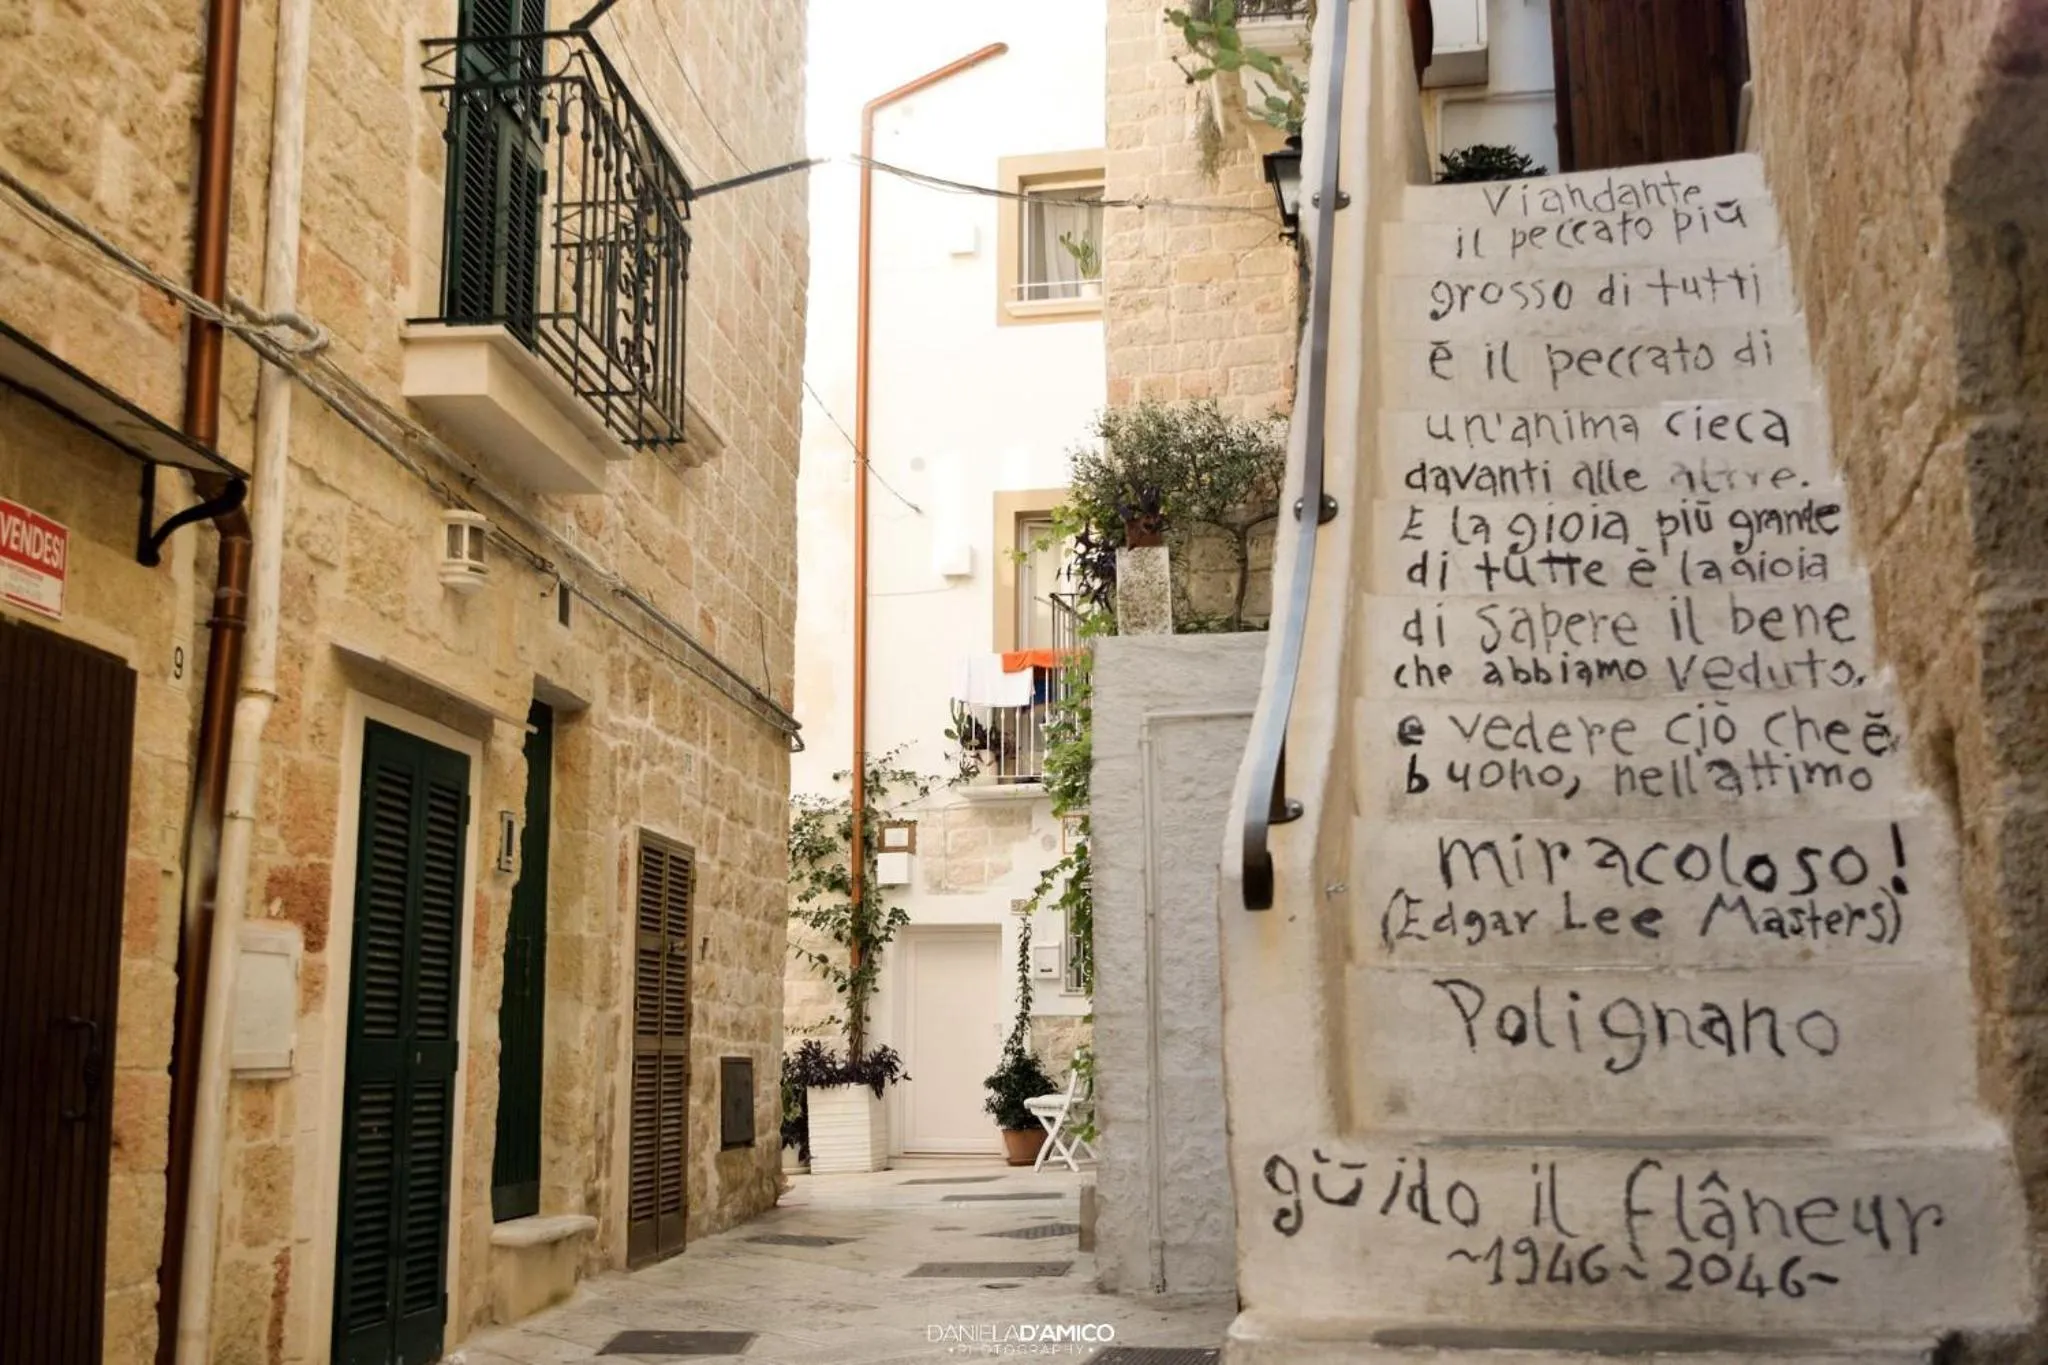 VENDESI
9
Viandante
il peccato più
grosso di tutti
è il peccato di
un'anima cieca
davanti alle altre.
E la gioia più grande
di tutte è la gioia
di sapere il bene
che abbiamo veduto,
e vedere ciò che è
buono, nell'attimo
miracoloso!
(Edgar Lee Masters)
Polignano
güido il flâneur
~1946~2046~
DANIELAD'AMICO
•PHOTOGRAPHY•